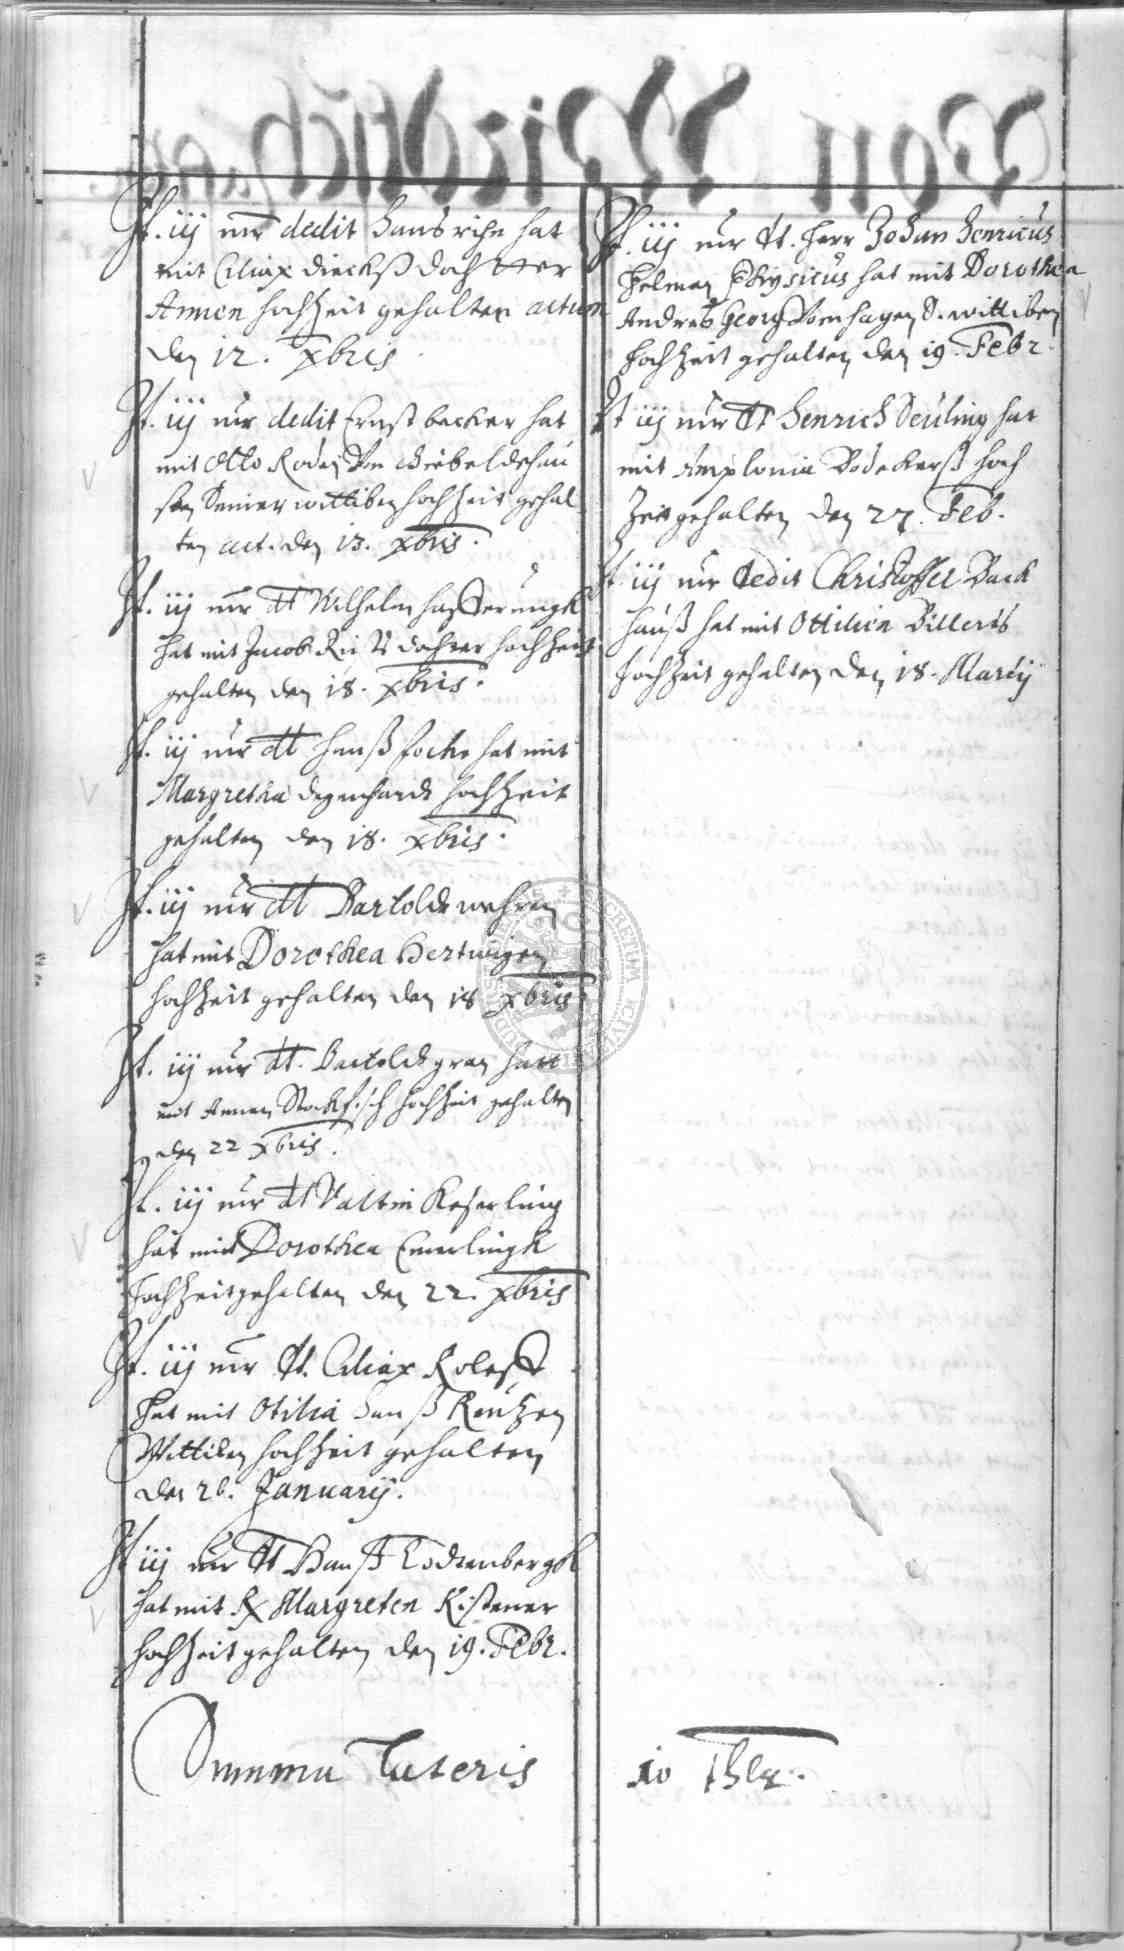 It. iij mr dedit Hans rihn hat
mit Ciliax dierkß dochtter
Annen hochzeit gehalten actum
den 12. xbris
It. iij mr dedit Ernst becker hat
mit Otto Roden von Giebeldehau
sen wittiben hochzeit gehal
ten act. den 13. xbris.
It. iij mr dt Wilhelm
hat mit Jacob dochter hochzeit
gehalten den 18. xbris.
It. iij mr dt Hanß Jocke hat mit
Margretha degenhardt hochzeit
gehalten den 18. xbris.
It. iij mr dt Bartoldt wehren
hat mit Dorothea Hertwigen
hochzeit gehalten den 18 xbris
It. iij mr dt. Bartoldt gran hatt
mit Annen Stockfisch hochzeit gehalten
den 22 xbris.
It. iij mr dt Valtin Keserling
hat mit Dorothea Emerlingk
hochzeit gehalten den 22. xbris
It. iij mr dt. Ciliax Roleff
hat mit Otilia Hanß Reutzen
Wittiben hochzeit gehalten
den 26. January.
It iij mr dt Hanß
hat mit Margreten Kistener
hochzeit gehalten den 19. Febr.
It. iij mr dt. Herr Johan Henricus
Helman Physicus hat mit Dorothea
Andres Georg Vonhagen S. wittiben
hochzeit gehalten den 19. Febr.
It iij mr dt Henrich Seuling hat
mit Amplonia Bödekerß hoch
Zeit gehalten den 27. Feb.
It. iij mr dedit Christoffel Back
hauß hat mit Ottilien Billerts
hochzeit gehalten den 18. Martij
Summa Lateris
10 thlr.